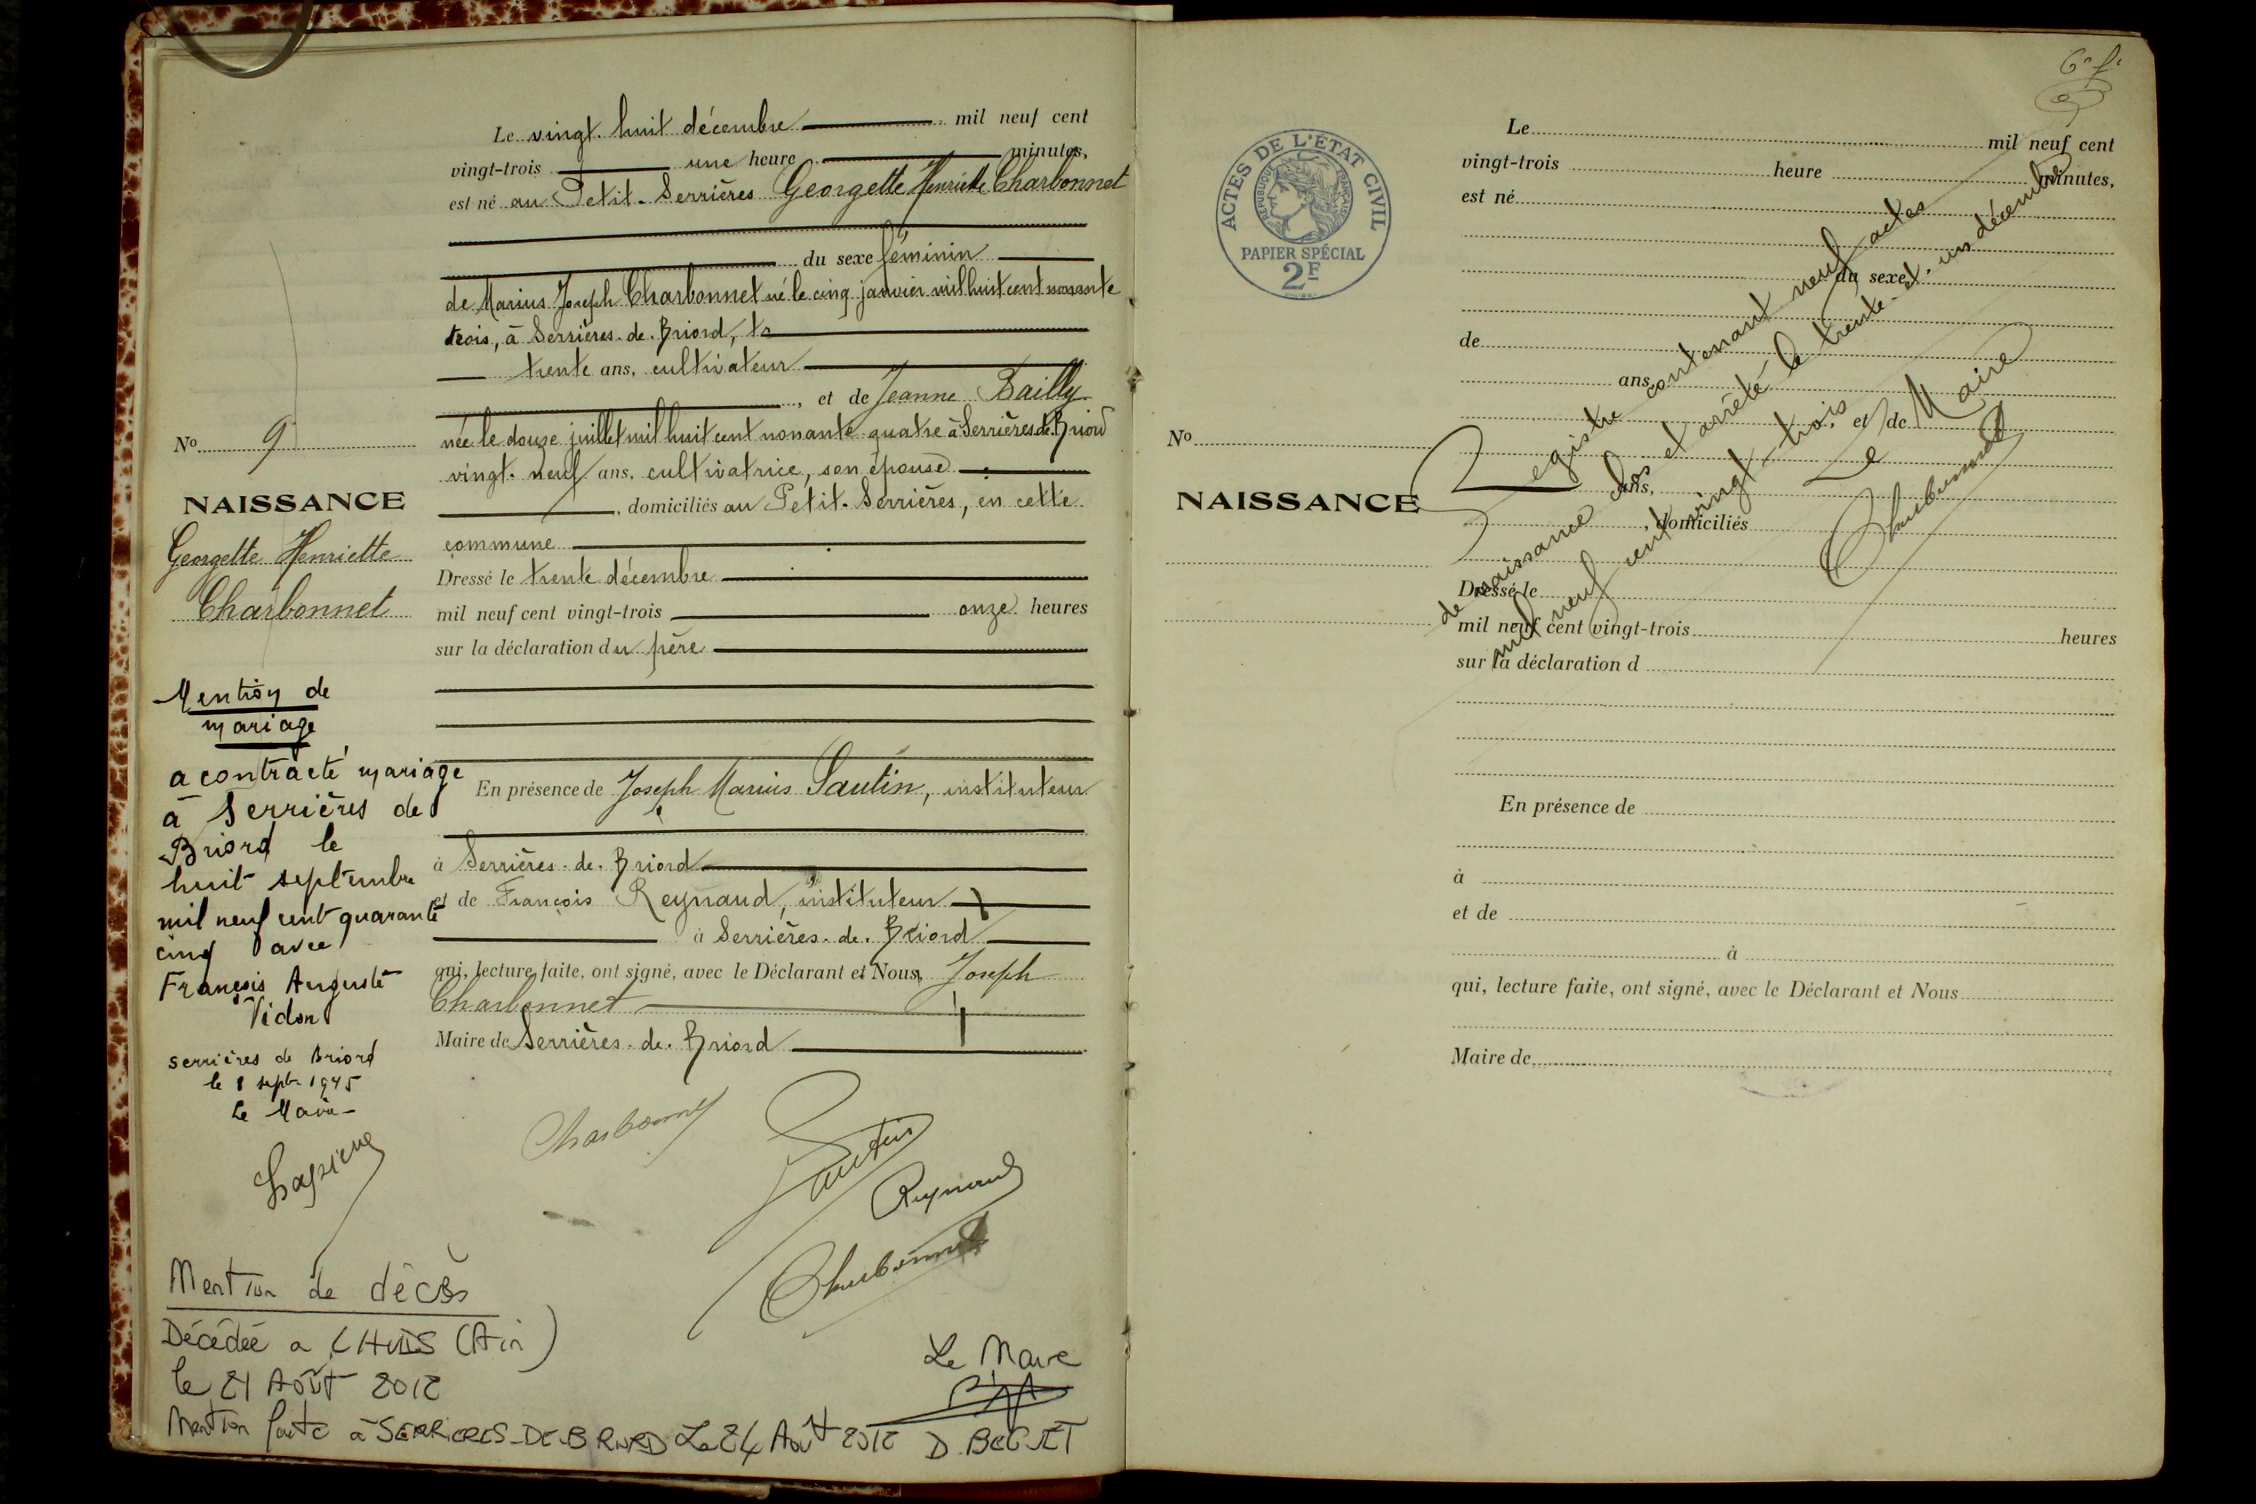 Le vingt-huit décembre mil neuf cent
vingt-trois une heure minutes,
est né au Petit-Serrières Georgette Henriette Charbonnet
du sexe féminin
de Marius Joseph Charbonnet né le cinq janvier mil huit cent nonante
trois, à Serrières-de-Briord,
trente ans, cultivateur
, et de Jeanne Bailly
née le douze juillet mil huit cent nonante-quatre à Serrières-de-Briord
vingt-neuf ans, cultivatrice, son épouse
, domiciliés au Petit-Serrières, en cette
commune
Dressé le trente décembre
mil neuf cent vingt-trois onze heures
sur la déclaration du père
En présence de Joseph Marius Sautin, instituteur
à Serrières-de-Briord
et de François Reynaud, instituteur
à Serrières-de-Briord
qui, lecture faite, ont signé, avec le Déclarant et Nous, Joseph
Charbonnet
Maire de Serrières-de-Briord
Charbonnet
Sautin
Reynaud
Charbonnet
No 9
NAISSANCE
Georgette Henriette
Charbonnet
Mention de
mariage
a contracté mariage
à Serrières de
Briord le
huit septembre
mil neuf cent quarante
cinq avec
François Auguste
Vidon
Serrières de Briord
le 8 septbr 1945
Le Maire
Mention de décès
Décédée a LHUIS (Ain)
le 21 Août 2012
Mention faite a SERRIERES-DE-BRIORD Le 24 Août 2012
Le Maire
D BEGUET
ACTES DE L'ÉTAT CIVIL
RÉPUBLIQUE FRANÇAISE
PAPIER SPÉCIAL
2F
Le mil neuf cent
vingt-trois heure minutes,
est né
du sexe
de
ans,
, et de
ans,
, domiciliés
Dressé le
mil neuf cent vingt-trois heures
sur la déclaration d
En présence de
à
et de
à
qui, lecture faite, ont signé, avec le Déclarant et Nous
Maire de
No
NAISSANCE
Registre contenant neuf actes
de naissance clos et arrêté le trente-et-un décembre
mil neuf cent vingt-trois
Le Maire
Charbonnet